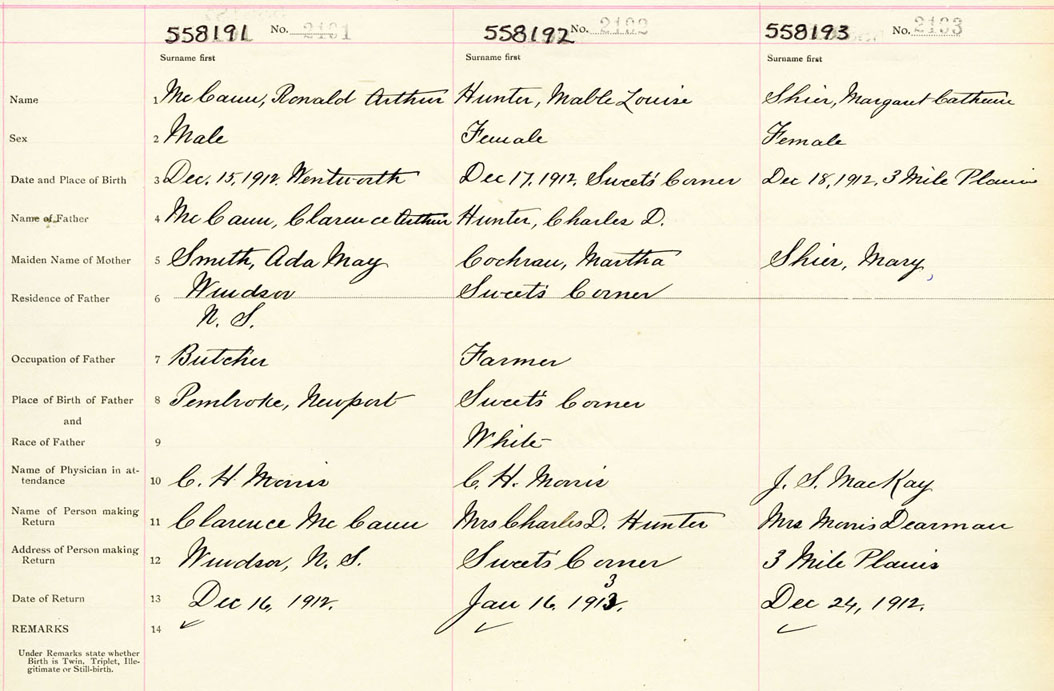 558191 No. 2191 558192 No. 2192 558193 No. 2193
Surname first Surname first Surname first
Name 1 McCann, Ronald Arthur Hunter, Mable Louise Shier, Margaret Catherine
Sex 2 Male Female Female
Date and Place of Birth 3 Dec. 15, 1912. Wentworth Dec 17, 1912, Sweet's Corner Dec 18, 1912, 3 Mile Plains
Name of Father 4 McCann, Clarence Arthur Hunter, Charles D.
Maiden Name of Mother 5 Smith, Ada May Cochran, Martha Shier, Mary
Residence of Father 6 Windsor Sweet's Corner
N. S.
Occupation of Father 7 Butcher Farmer
Place of Birth of Father 8 Pembroke, Newport Sweet's Corner
and
Race of Father 9 White
Name of Physician in at-
tendance 10 C. H. Morris C. H. Morris J. S. MacKay
Name of Person making
Return 11 Clarence McCann Mrs Charles D. Hunter Mrs Morris Dearman
Address of Person making
Return 12 Windsor, N. S. Sweet's Corner 3 Mile Plains
Date of Return 13 Dec 16, 1912. Jan 16, 1913. Dec 24, 1912.
REMARKS 14
Under Remarks state whether
Birth is Twin, Triplet, Ille-
gitimate or Still-birth.